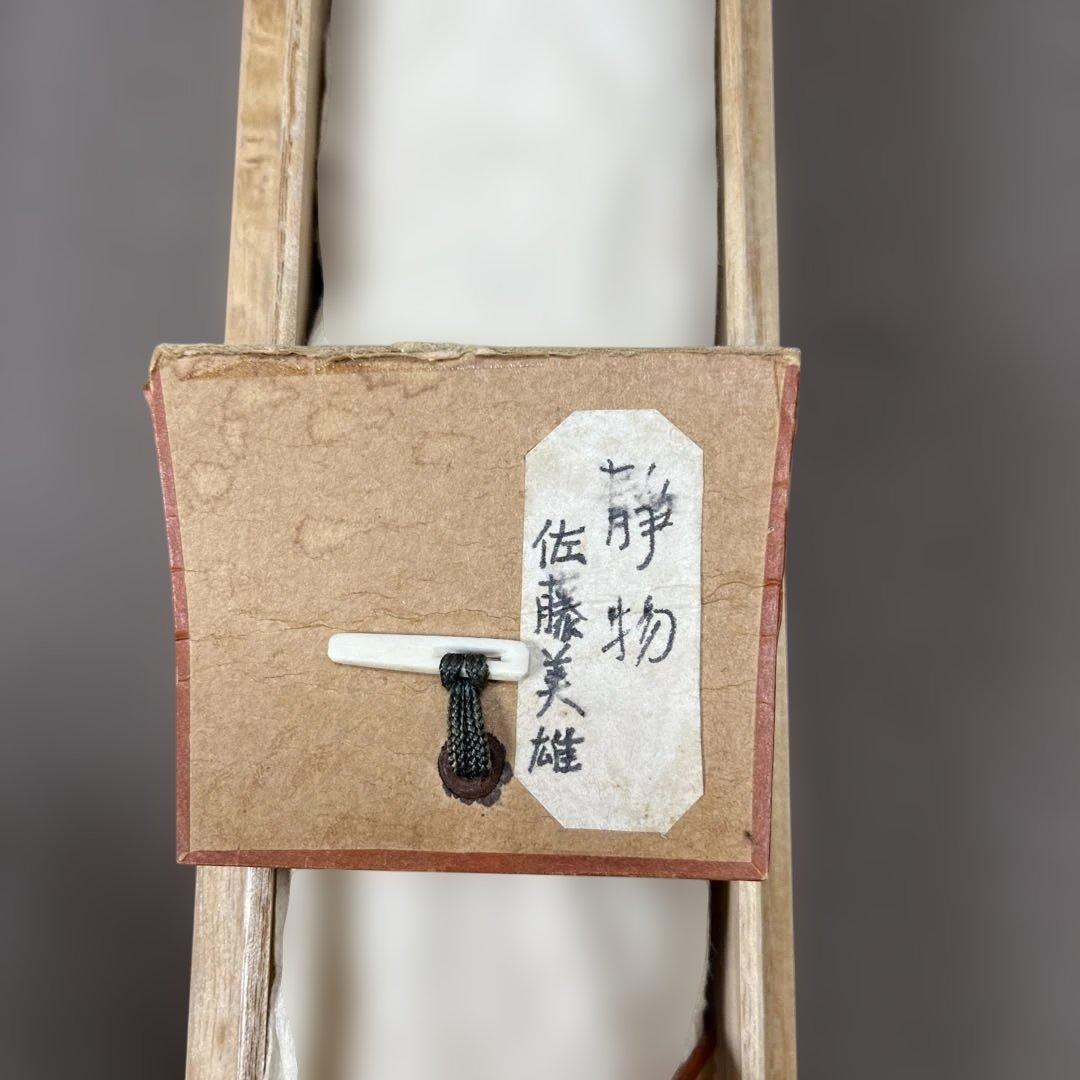 静物
佐藤美雄